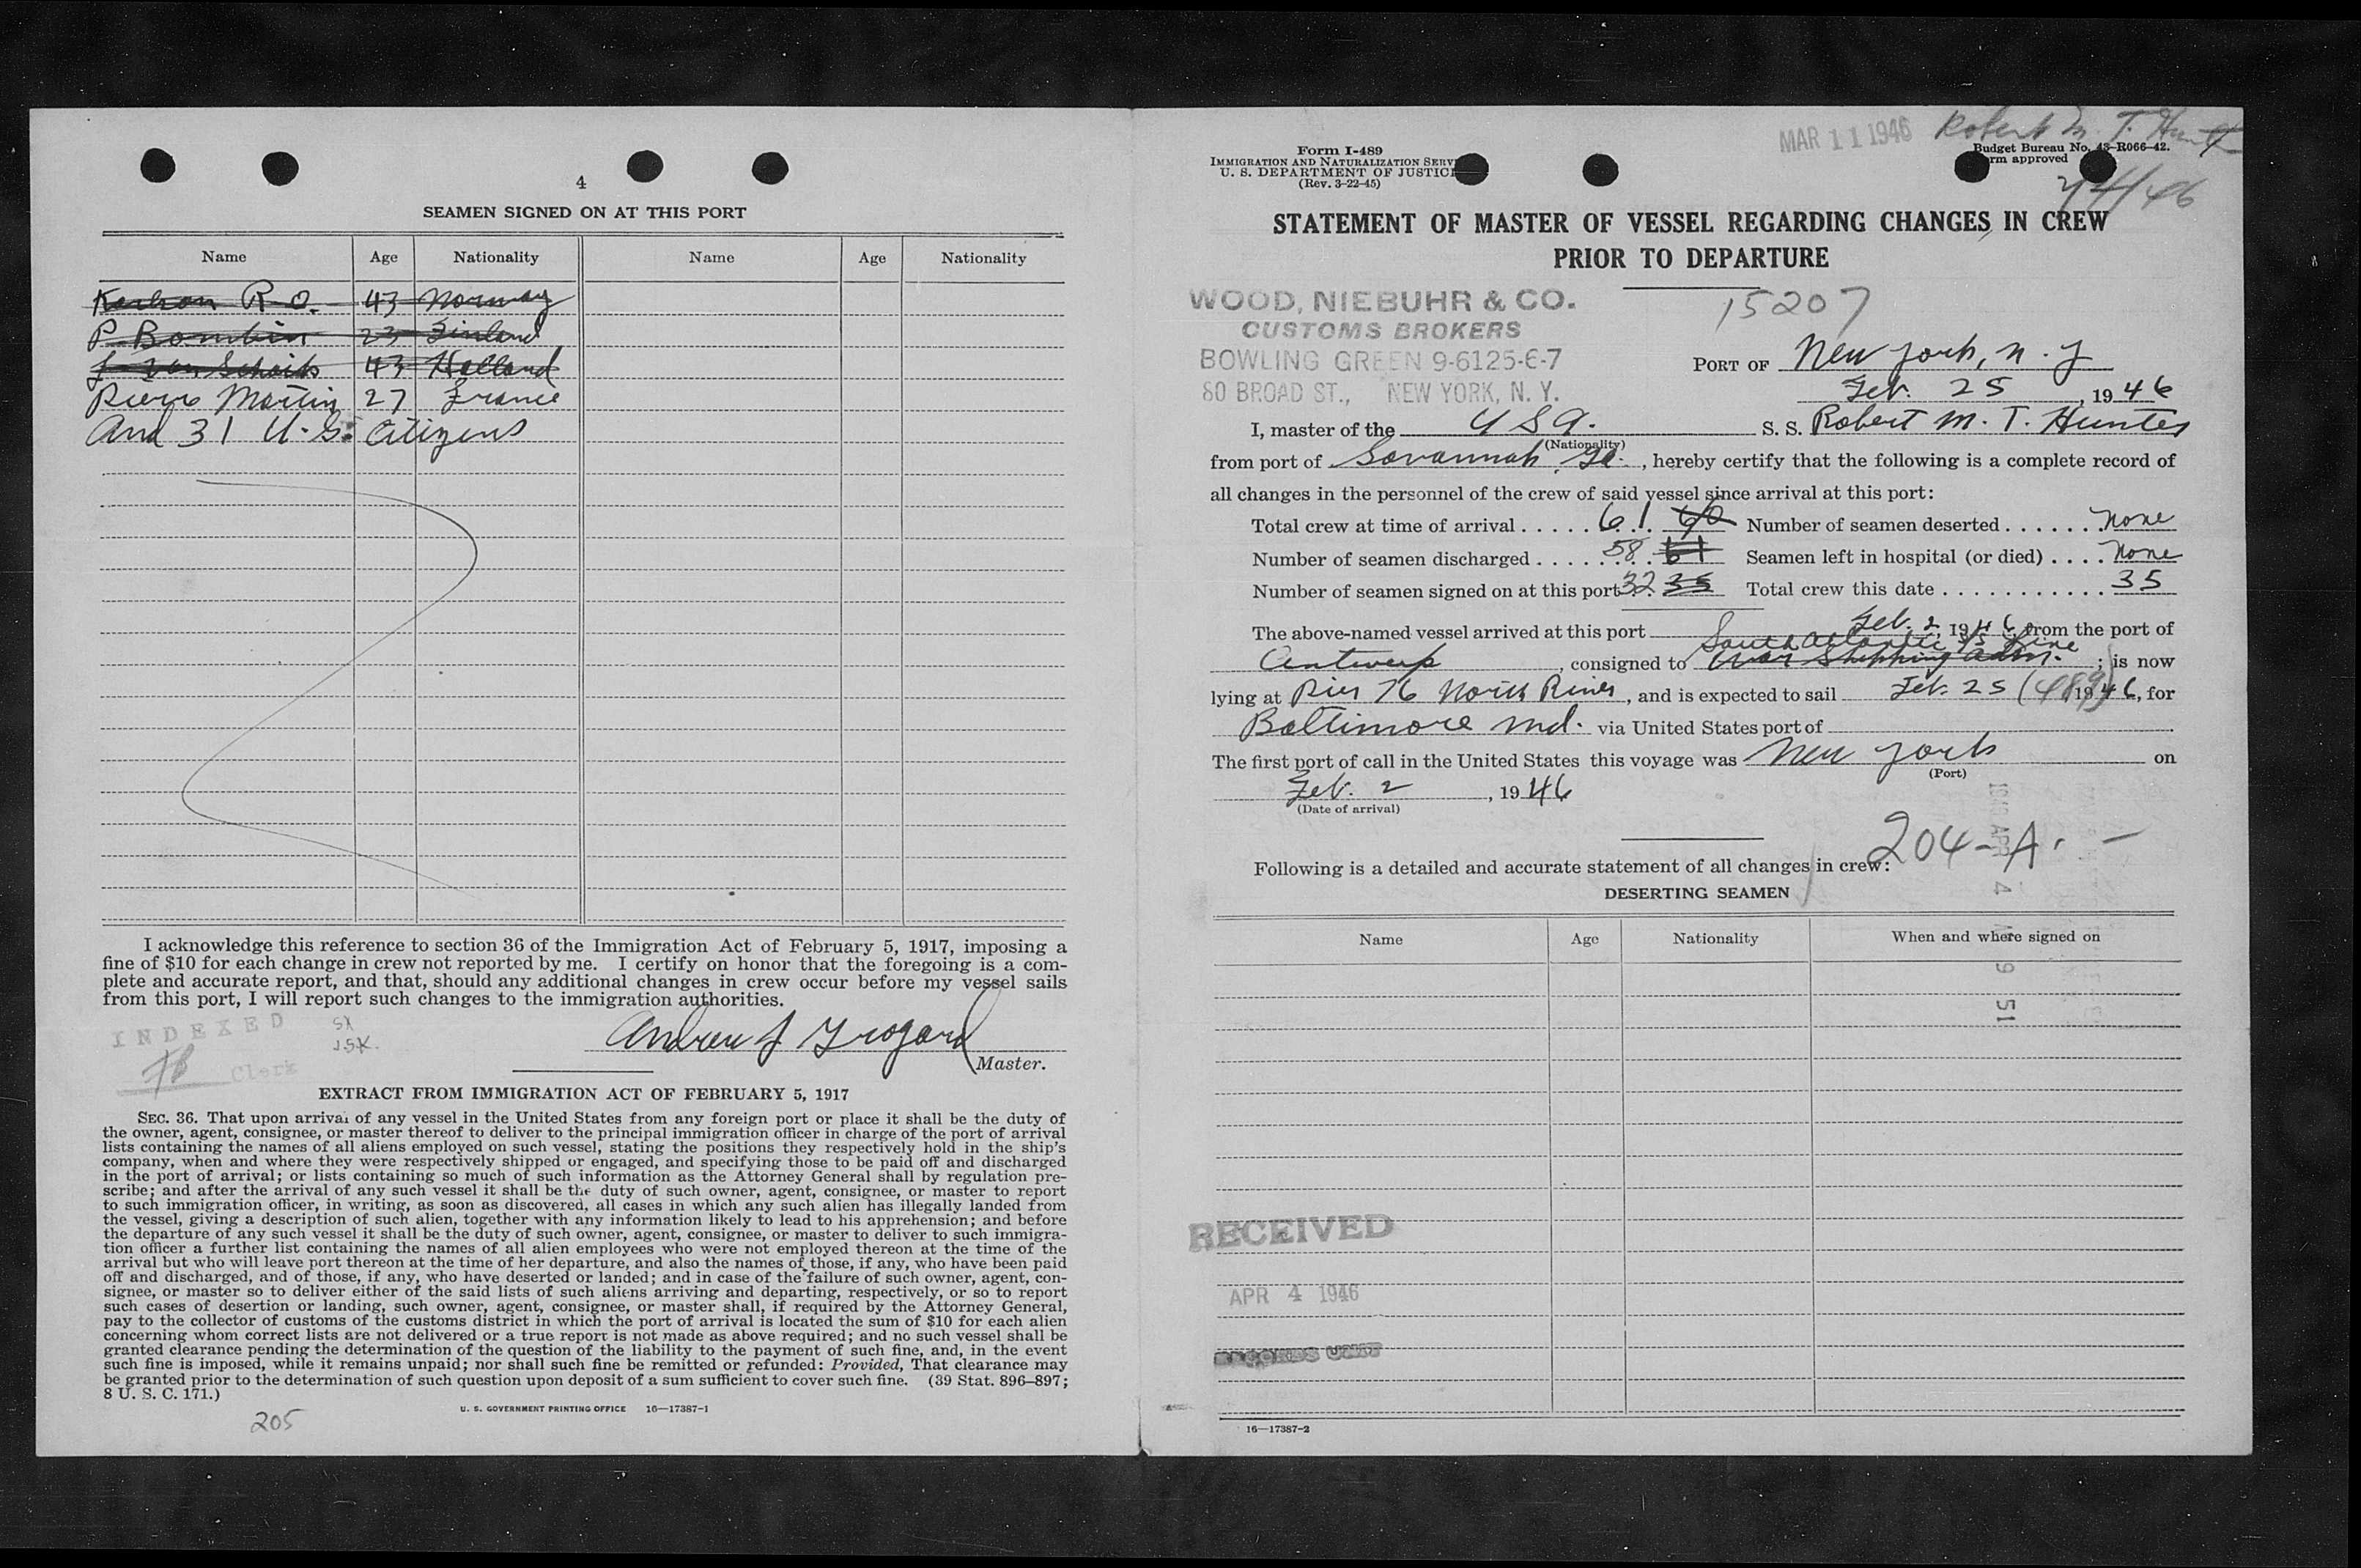 4
SEAMEN SIGNED ON AT THIS PORT
Name Age Nationality Name Age Nationality
R. O. 43 Norway
P. 23 Finland
J. Van 43 Holland
Pierre Martin 27 France
And 31 U.S. Citizens
I acknowledge this reference to section 36 of the Immigration Act of February 5, 1917, imposing a
fine of $10 for each change in crew not reported by me. I certify on honor that the foregoing is a com-
plete and accurate report, and that, should any additional changes in crew occur before my vessel sails
from this port, I will report such changes to the immigration authorities.
INDEXED
Clerk
Andrew J
Master.
EXTRACT FROM IMMIGRATION ACT OF FEBRUARY 5, 1917
SEC. 36. That upon arrival of any vessel in the United States from any foreign port or place it shall be the duty of
the owner, agent, consignee, or master thereof to deliver to the principal immigration officer in charge of the port of arrival
lists containing the names of all aliens employed on such vessel, stating the positions they respectively hold in the ship's
company, when and where they were respectively shipped or engaged, and specifying those to be paid off and discharged
in the port of arrival; or lists containing so much of such information as the Attorney General shall by regulation pre-
scribe; and after the arrival of any such vessel it shall be the duty of such owner, agent, consignee, or master to report
to such immigration officer, in writing, as soon as discovered, all cases in which any such alien has illegally landed from
the vessel, giving a description of such alien, together with any information likely to lead to his apprehension; and before
the departure of any such vessel it shall be the duty of such owner, agent, consignee, or master to deliver to such immigra-
tion officer a further list containing the names of all alien employees who were not employed thereon at the time of the
arrival but who will leave port thereon at the time of her departure, and also the names of those, if any, who have been paid
off and discharged, and of those, if any, who have deserted or landed; and in case of the failure of such owner, agent, con-
signee, or master so to deliver either of the said lists of such aliens arriving and departing, respectively, or so to report
such cases of desertion or landing, such owner, agent, consignee, or master shall, if required by the Attorney General,
pay to the collector of customs of the customs district in which the port of arrival is located the sum of $10 for each alien
concerning whom correct lists are not delivered or a true report is not made as above required; and no such vessel shall be
granted clearance pending the determination of the question of the liability to the payment of such fine, and, in the event
such fine is imposed, while it remains unpaid; nor shall such fine be remitted or refunded: Provided, That clearance may
be granted prior to the determination of such question upon deposit of a sum sufficient to cover such fine. (39 Stat. 896–897;
8 U. S. C. 171.)
U. S. GOVERNMENT PRINTING OFFICE 16—17387-1
205
MAR 11 1946 Robert M. T. Hunt
Form I-489
IMMIGRATION AND NATURALIZATION SERV
U. S. DEPARTMENT OF JUSTIC
(Rev. 3-22-45)
Budget Bureau No. 43-R066-42.
rm approved
STATEMENT OF MASTER OF VESSEL REGARDING CHANGES IN CREW
PRIOR TO DEPARTURE
WOOD, NIEBUHR & CO.
CUSTOMS BROKERS
BOWLING GREEN 9-6125-6-7
80 BROAD ST., NEW YORK, N. Y.
15207
PORT OF New York, N. Y
Feb. 25, 1946
I, master of the USA. S. S. Robert M. T. Hunter
(Nationality)
from port of Savannah, Ga., hereby certify that the following is a complete record of
all changes in the personnel of the crew of said vessel since arrival at this port:
Total crew at time of arrival ..... 61 60 Number of seamen deserted ...... None
Number of seamen discharged ....... 58 61 Seamen left in hospital (or died) .... None
Number of seamen signed on at this port 32 35 Total crew this date ........... 35
The above-named vessel arrived at this port Feb. 2, 1946, from the port of
South Atlantic S/S Line
Antwerp, consigned to War Shipping Adm.; is now
lying at Pier 76 North River, and is expected to sail Feb. 25 (489) 1946, for
Baltimore Md. via United States port of
The first port of call in the United States this voyage was New York on
(Port)
Feb. 2, 1946
(Date of arrival)
204-A.
Following is a detailed and accurate statement of all changes in crew:
DESERTING SEAMEN
Name Age Nationality When and where signed on
RECEIVED
APR 4 1946
RECORDS UNIT
16—17387-2